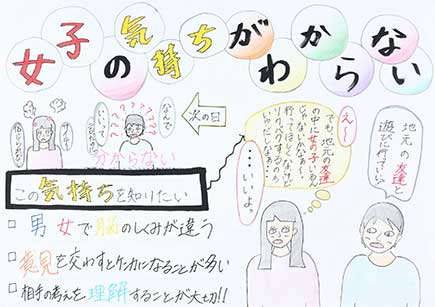 女子の気持ちがわからない
地元の友達と
遊びに行っていい？
え〜
でも、地元の友達
の中に女の子いるん
じゃないかなぁ〜、
行ってほしくないけど
ソクバクするのも
いやだしなぁ〜
・・・いいよ。
次の日
なんで
いいって
言ったのに
???????
サイテー
信じられない
分からない
この気持ちを知りたい
□ 男女で脳のしくみが違う
□ 意見を交わすとケンカになることが多い
□ 相手の考えを理解することが大切!!